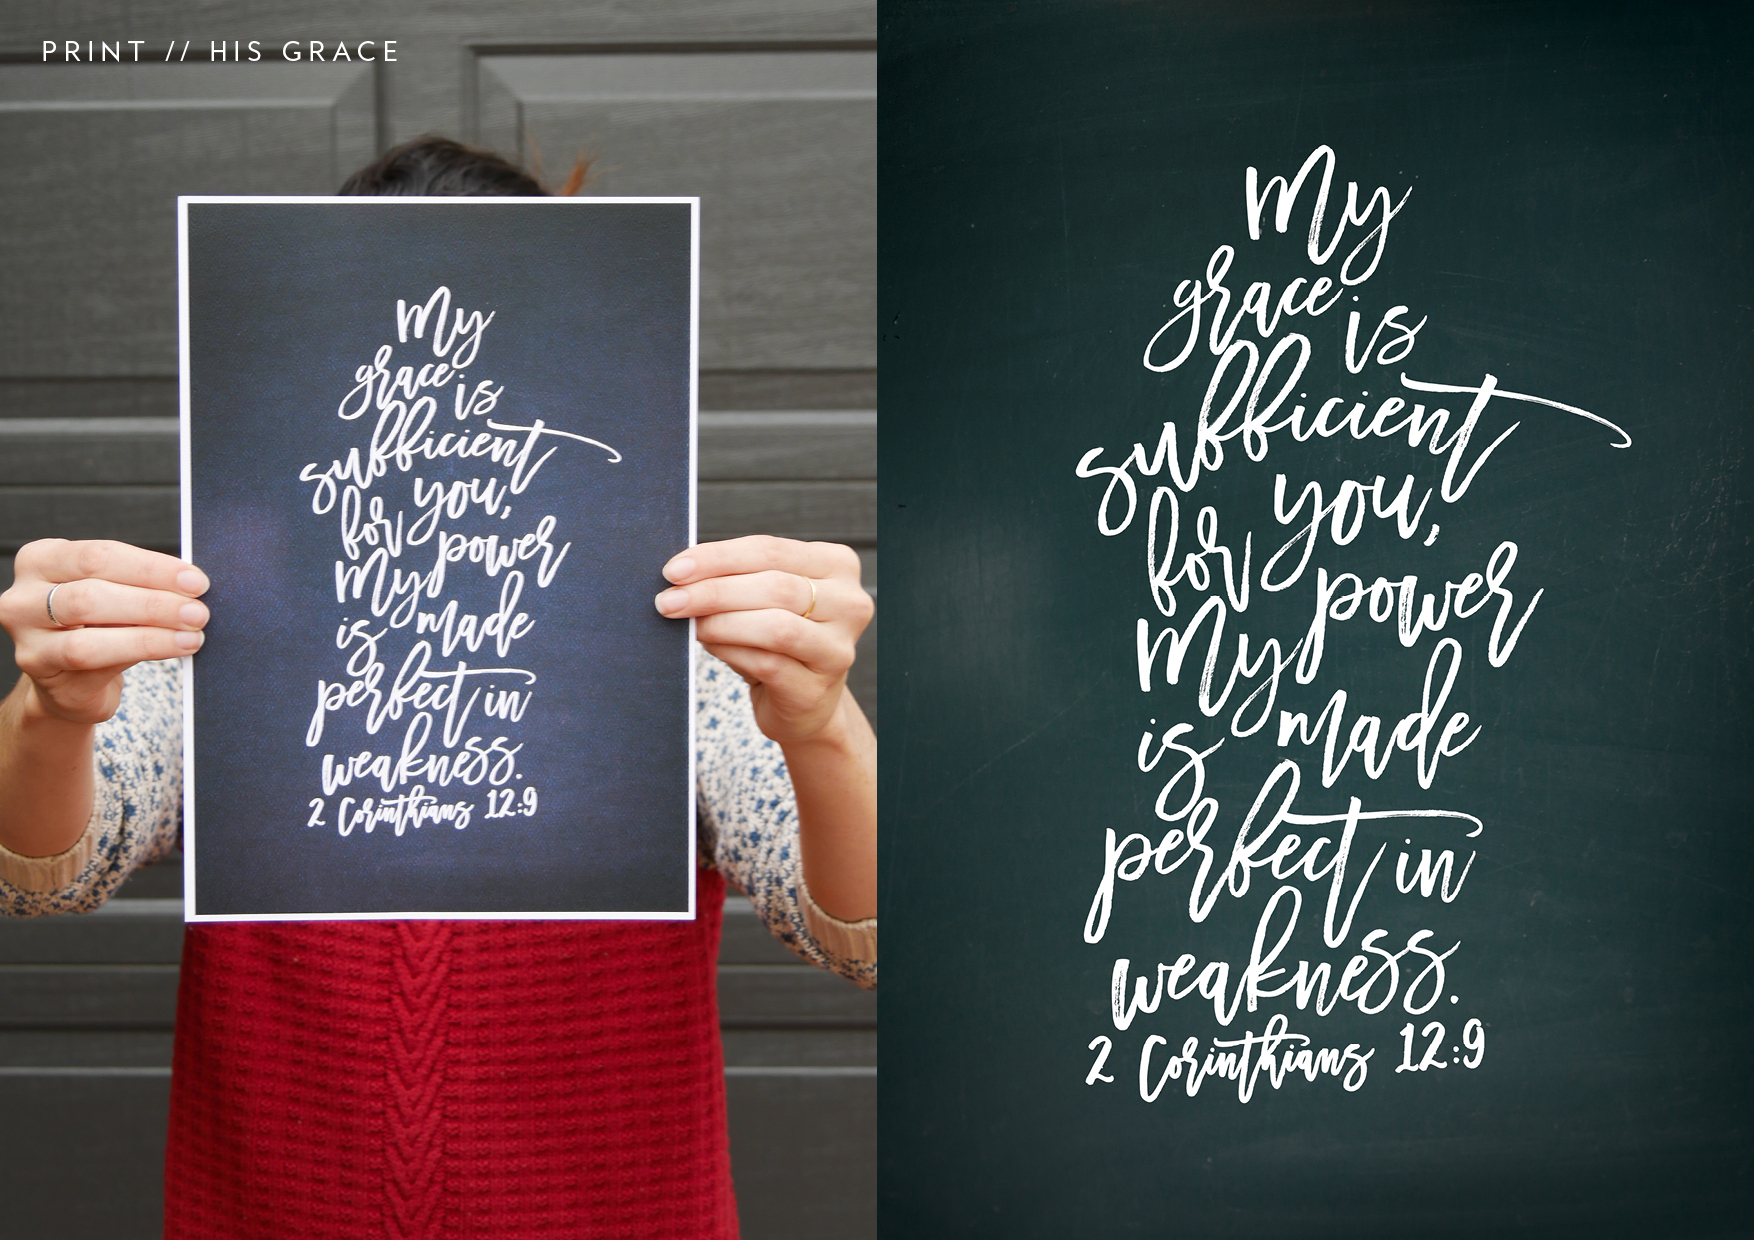 PRINT // HIS GRACE
My
grace is
sufficient
for you,
My power
is made
perfect in
weakness.
2 Corinthians 12:9
My
grace is
sufficient
for you,
My power
is made
perfect in
weakness.
2 Corinthians 12:9